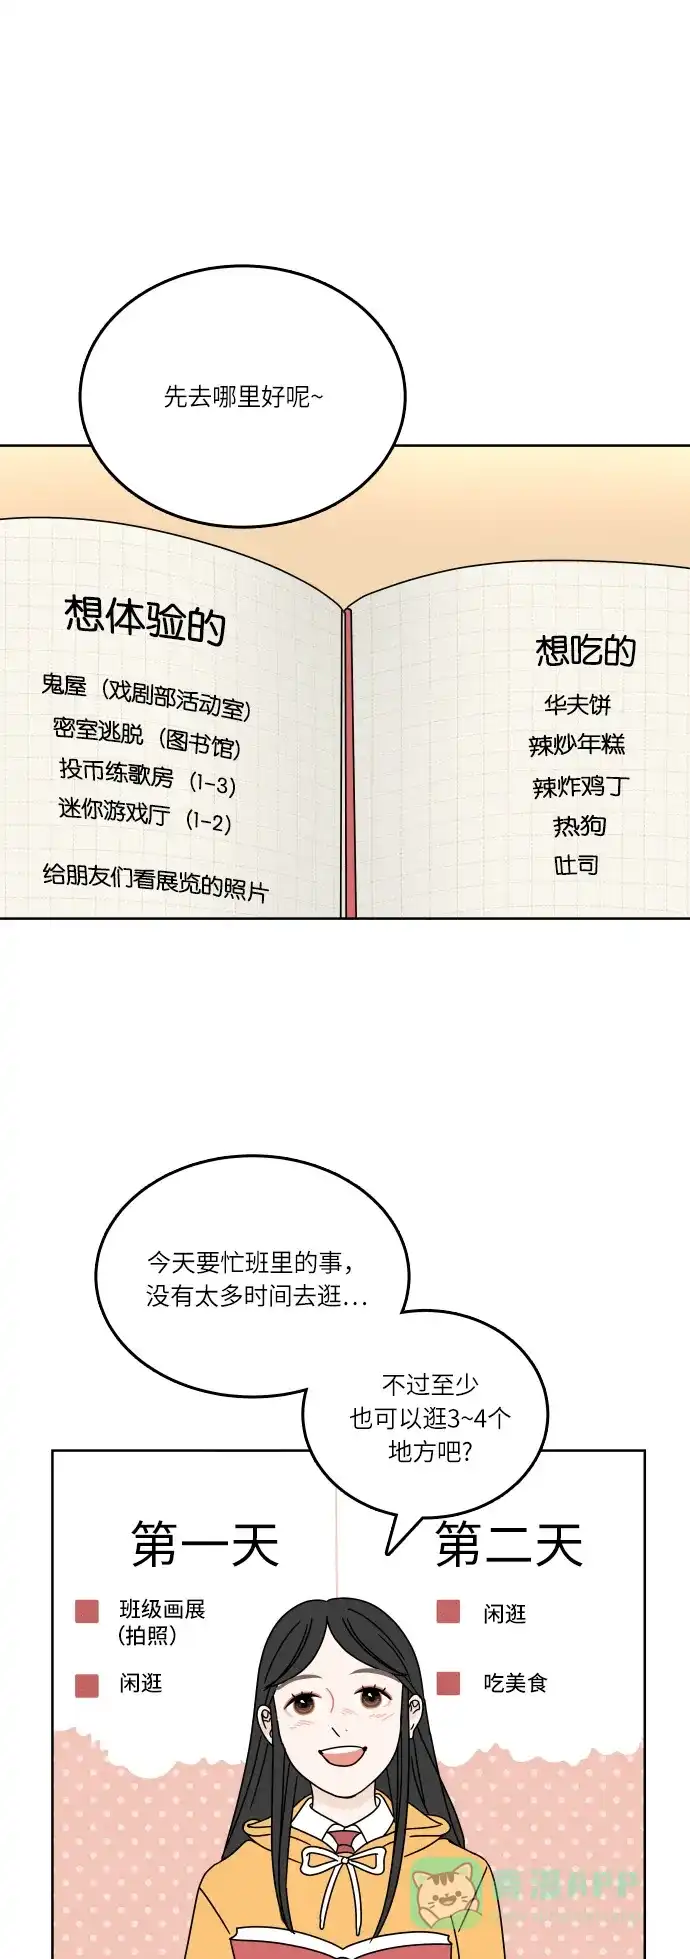 先去哪里好呢~
想体验的
鬼屋（戏剧部活动室）
密室逃脱（图书馆）
投币练歌房（1-3）
迷你游戏厅（1-2）
给朋友们看展览的照片
想吃的
华夫饼
辣炒年糕
辣炸鸡丁
热狗
吐司
今天要忙班里的事，
没有太多时间去逛...
不过至少
也可以逛3~4个
地方吧?
第一天
班级画展
（拍照）
闲逛
第二天
闲逛
吃美食
APP